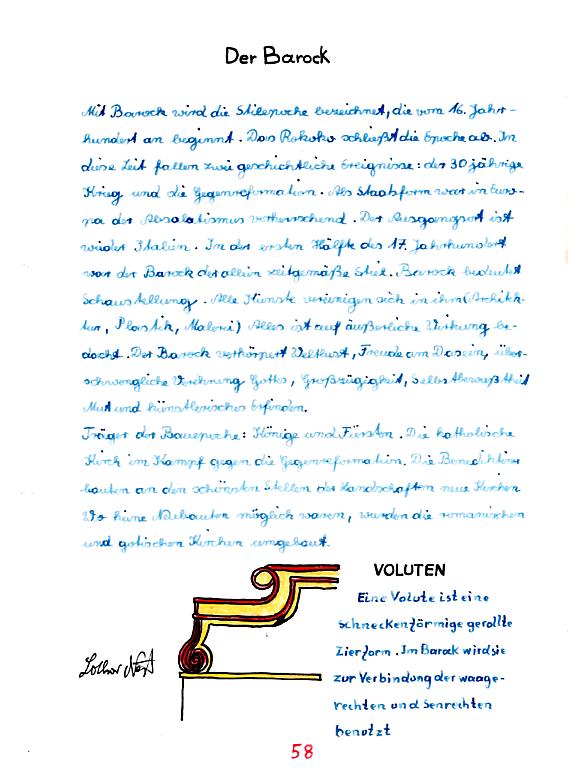 Der Barock
Mit Barock wird die Stilepoche bezeichnet, die vom 16. Jahr-
hundert an beginnt. Das Rokoko schließt die Epoche ab. In
diese Zeit fallen zwei geschichtliche Ereignisse: der 30 jährige
Krieg und die Gegenreformation. Als Staatsform war in Euro-
pa der Absolutismus vorherrschend. Der Ausgangsort ist
wieder Italien. In der ersten Hälfte des 17. Jahrhundert
war der Barock der allein zeitgemäße Stiel. Barock bedeutet
Schaustellung. Alle Künste vereinigen sich in ihm (Archihk-
tur, Plastik, Malerei) Alles ist auf äußerliche Wirkung be-
dacht. Der Barock verkörpert Weltlust, Freude am Dasein, über-
schwengliche Verehrung Gottes, Großzügigkeit, Selbstbewußtheit
Mut und künstlerisches Erfinden.
Träger der Bauepoche: Könige und Fürsten. Die katholische
Kirch im Kampf gegen die Gegenreformation. Die Benediktiner
bauten an den schönsten Stellen der Landschaften neue Kirchen
Wo keine Neubauten möglich waren, wurden die romanischen
und gotischen Kirchen umgebaut.
VOLUTEN
Eine Volute ist eine
schneckenförmige gerollte
Zierform. Im Barock wird sie
zur Verbindung der waage-
rechten und Senrechten
benutzt
Lothar
58